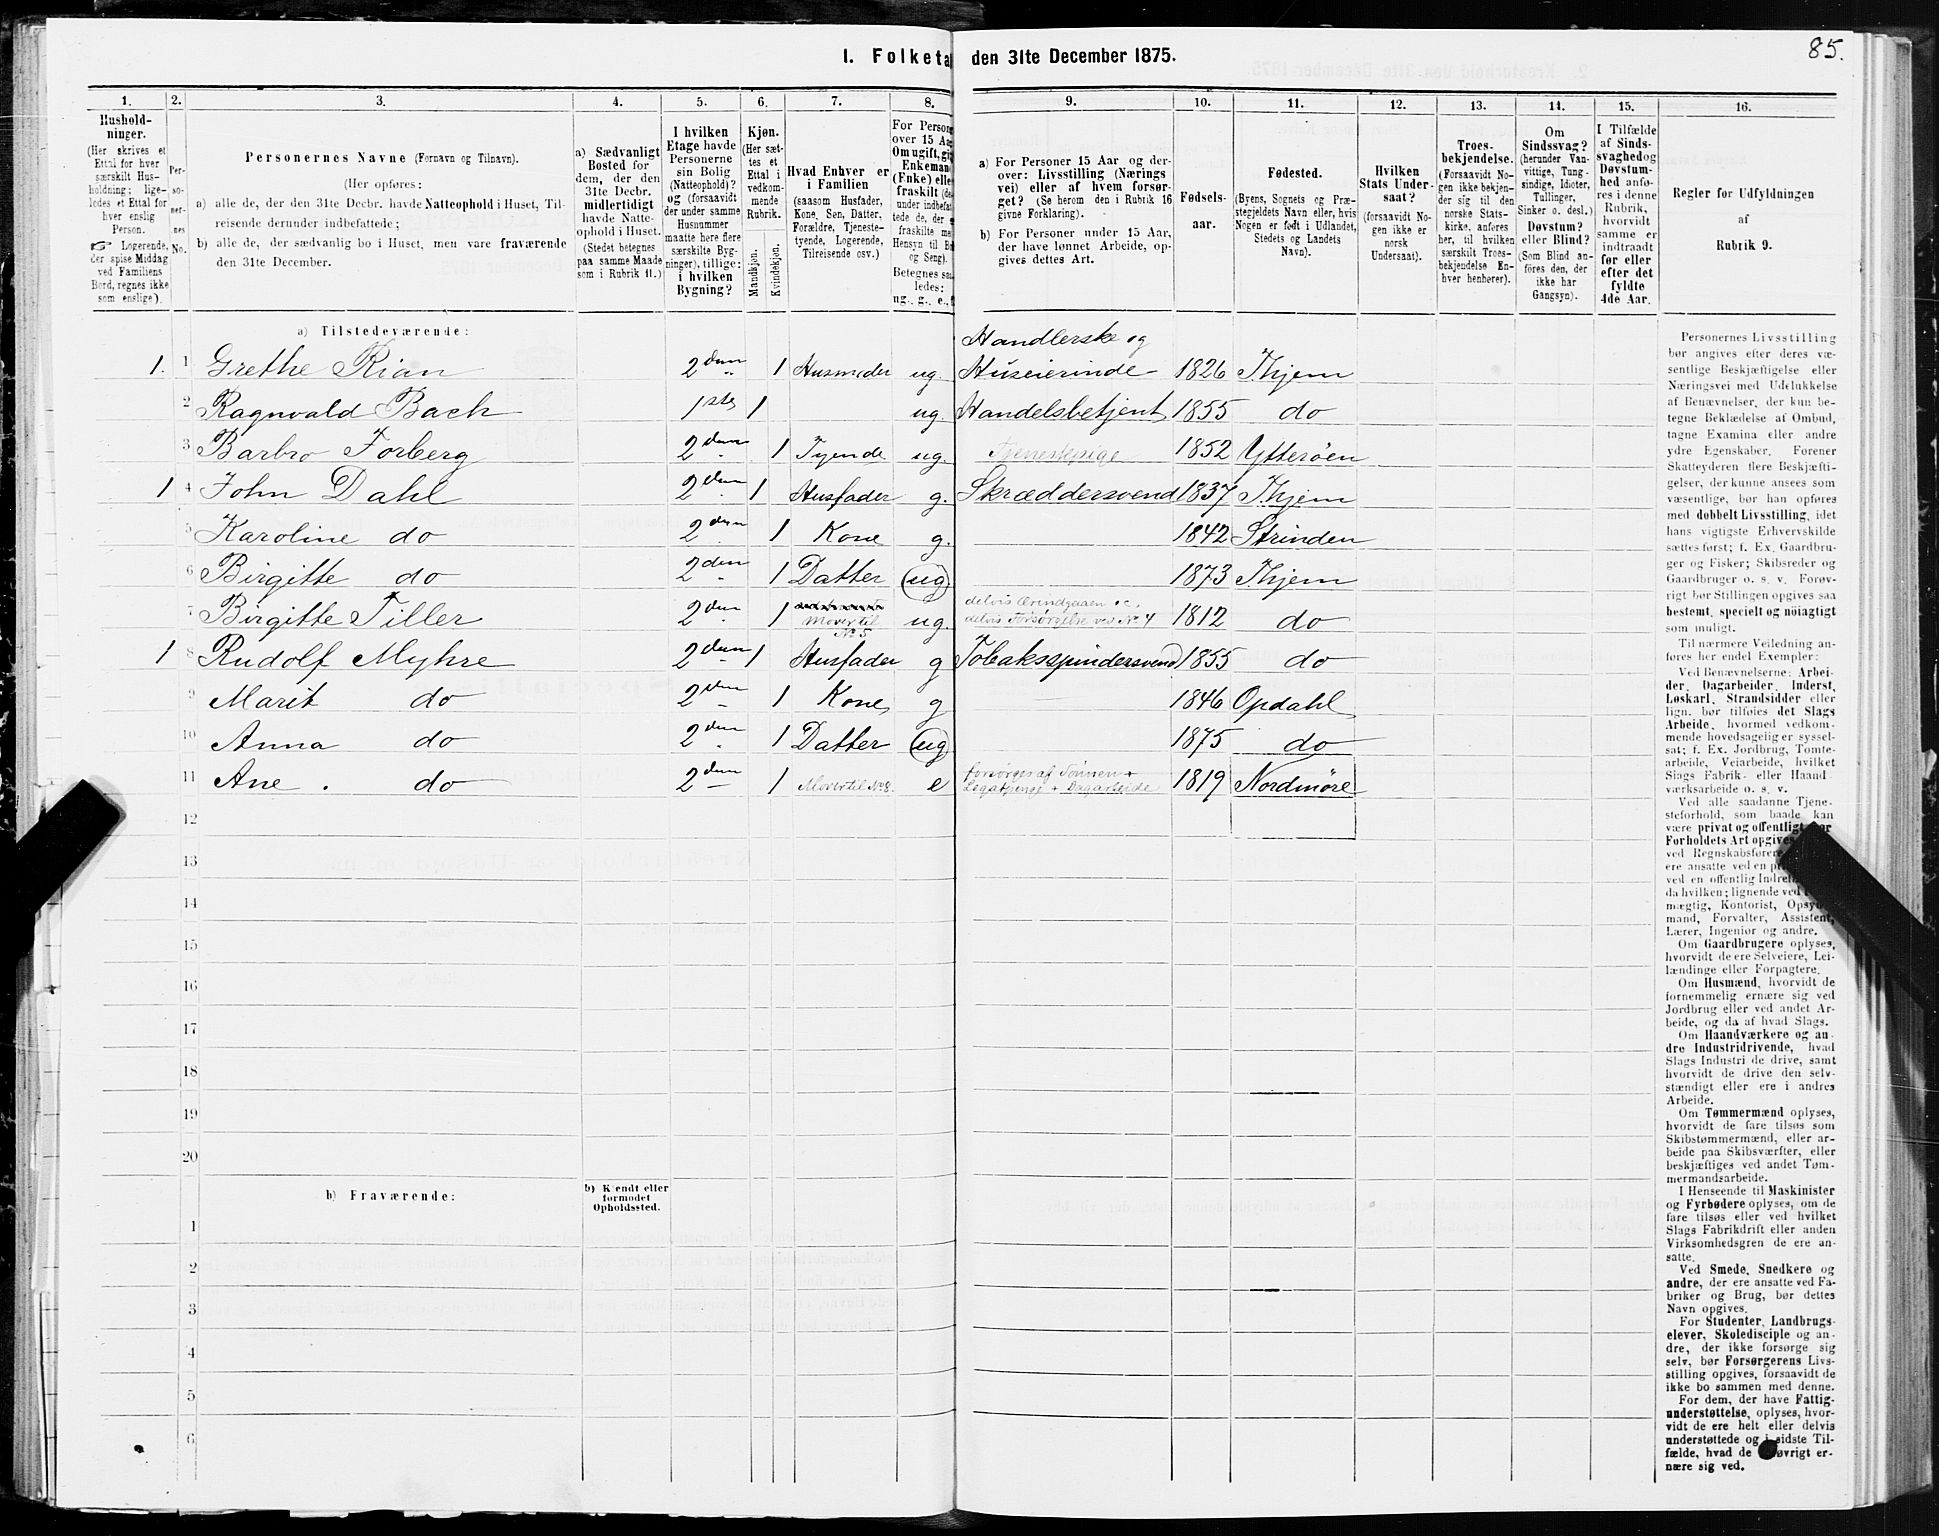 85.
I. Folketa den 31te December 1875.
1. 2. 3. 4. 5. 6. 7. 8. 9. 10. 11. 12. 13. 14. 15. 16.
Hushold-
ninger.
(Her skrives et
Ettal for hver
særskilt Hus-
holdning; lige-
ledes et Ettal for
hver enslig
Person.
☞ Logerende,
der spise Middag
ved Familiens
Bord, regnes ikke
som enslige).
Per-
so-
ner-
nes
No.
Personernes Navne (Fornavn og Tilnavn).
(Her opføres:
a) alle de, der den 31te Decbr. havde Natteophold i Huset, Til-
reisende derunder indbefattede;
b) alle de, der sædvanlig bo i Huset, men vare fraværende
den 31te December.
a) Sædvanligt
Bosted for
dem, der den
31te Decbr.
midlertidigt
havde Natte-
ophold i Huset.
(Stedet betegnes
paa samme Maade
som i Rubrik 11.)
I hvilken
Etage havde
Personerne
sin Bolig
(Natteophold)?
og (forsaavidt
der under samme
Husnummer
maatte høre flere
særskilte Byg-
ninger), tillige:
i hvilken
Bygning?
Kjøn.
(Her sæt-
tes et
Ettal i
vedkom-
mende
Rubrik.
Mandkjøn.
Kvindekjøn.
Hvad Enhver er
i Familien
(saasom Husfader,
Kone, Søn, Datter,
Forældre, Tjeneste-
tyende, Logerende,
Tilreisende osv.)
For Person
over 15 Aa
Om ugift, gi
Enkeman
(Enke) elle
fraskilt (de
under indbefat
tede de, der
fraskilte me
Hensyn til B
og Seng).
Betegnes saa
ledes:
ug., g., e., f
a) For Personer 15 Aar og der-
over: Livsstilling (Nærings
vei) eller af hvem forsør-
get? (Se herom den i Rubrik 16
givne Forklaring).
b) For Personer under 15 Aar,
der have lønnet Arbeide, op-
gives dettes Art.
Fødsels-
aar.
Fødested.
(Byens, Sognets og Præ-
stegjeldets Navn eller, hvis
Nogen er født i Udlandet,
Stedets og Landets
Navn).
Hvilken
Stats Under-
saat?
(forsaavidt No-
gen ikke er
norsk
Undersaat).
Troes-
bekjendelse.
(Forsaavidt No-
gen ikke bekjen-
der sig til den
norske Stats-
kirke, anføres
her, til hvilken
særskilt Troes-
bekjendelse En-
hver henhører).
Om
Sindssvag?
(herunder Van-
vittige, Tung-
sindige, Idioter,
Tullinger,
Sinker o. desl.)
Døvstum?
eller Blind?
(Som Blind an-
føres den, der
ikke har
Gangsyn).
I Tilfælde
af Sinds-
svaghed og
Døvstum-
hed anfø-
res i denne
Rubrik,
hvorvidt
samme er
indtraadt
før eller
efter det
fyldte
4de Aar.
Regler for Udfyldningen
af
Rubrik 9.
a) Tilstedeværende:
Handlerske og
1. 1 Grethe Rian 2den 1 Husmoder ug. Huseierinde 1826 Thjem
2 Ragnvald Bach 1ste 1 ug. Handelsbetjent 1855 do
3 Barbro Forberg 2den 1 Tyende ug. Tjenestepige 1852 Ytterøen
1 4 John Dahl 2den 1 Husfader g. Skræddersvend 1837 Thjem
5 Karoline do 2den 1 Kone g. 1842 Strinden
6 Birgitte do 2den 1 Datter (ug) 1873 Thjem
7 Birgitte Tiller 2den 1 Moder til No 5 ug. delvis Ærindgaaen oc. delvis Forsørgelse ved No 4 1812 do
1 8 Rudolf Myhre 2den 1 Husfader g Tobaksspindersvend 1855 do
9 Marit do 2den 1 Kone g 1846 Opdahl
10 Anna do 2den 1 Datter (ug) 1875 do
11 Ane . do 2den 1 Moder til No 8. e forsørges af Sønnen + Legatpenge + Dagarbeide 1819 Nordmøre
12
13
14
15
16
17
18
19
20
b) Fraværende:
b) Kjendt eller
formodet
Opholdssted.
1
2
3
4
5
6
Personernes Livsstilling
bør angives efter deres væ-
sentlige Beskjæftigelse eller
Næringsvei med Udelukkelse
af Benævnelser, der kun be-
tegne Beklædelse af Ombud,
tagne Examina eller andre
ydre Egenskaber. Forener
Skatteyderen flere Beskjæfti-
gelser, der kunne ansees som
væsentlige, bør han opføres
med dobbelt Livsstilling, idet
hans vigtigste Erhvervskilde
sættes først; f. Ex. Gaardbru-
ger og Fisker; Skibsreder og
Gaardbruger o. s. v. Forøv-
rigt bør Stillingen opgives saa
bestemt, specielt og nöiagtigt
som muligt.
Til nærmere Veiledning an-
føres her endel Exempler:
Ved Benævnelserne: Arbei-
der, Dagarbeider, Inderst,
Løskarl, Strandsidder eller
lign. bør tilføies det Slags
Arbeide, hvormed vedkom-
mende hovedsagelig er syssel-
sat; f. Ex. Jordbrug, Tomte-
arbeide, Veiarbeide, hvilket
Slags Fabrik- eller Haand-
værksarbeide o. s. v.
Ved alle saadanne Tjene-
steforhold, som baade kan
være privat og offentligt,
Forholdets Art opgives
ved Regnskabsførere
ere ansatte ved en
ved en offentlig
da hvilken; lignende ved
mægtig, Kontorist, Opsy
mand, Forvalter, Assistent,
Lærer, Ingeniør og andre.
Om Gaardbrugere oplyses,
hvorvidt de ere Selveiere, Lei-
lændinge eller Forpagtere.
Om Husmænd, hvorvidt de
fornemmelig ernære sig ved
Jordbrug eller ved andet Ar-
beide, og da af hvad Slags.
Om Haandværkere og an-
dre Industridrivende, hvad
Slags Industri de drive, samt
hvorvidt de drive den selv-
stændigt eller ere i andres
Arbeide.
Om Tømmermænd oplyses,
hvorvidt de fare tilsøs som
Skibstømmermænd, eller ar-
beide paa Skibsværfter, eller
beskjæftiges ved andet Tøm-
mermandsarbeide.
I Henseende til Maskinister
og Fyrbødere oplyses, om de
fare tilsøs eller ved hvilket
Slags Fabrikdrift eller anden
Virksomhedsgren de ere an-
satte.
Ved Smede, Snedkere og
andre, der ere ansatte ved Fa-
briker og Brug, bør dettes
Navn opgives.
For Studenter, Landbrugs-
elever, Skoledisciple og an-
dre, der ikke forsørge sig
selv, bør Forsørgerens Livs-
stilling opgives, forsaavidt de
ikke bo sammen med denne.
For dem, der have Fattig-
understøttelse, oplyses, hvor-
vidt de ere helt eller delvis
understøttede og i sidste Til-
fælde, hvad de øvrigt er-
nære sig ved.